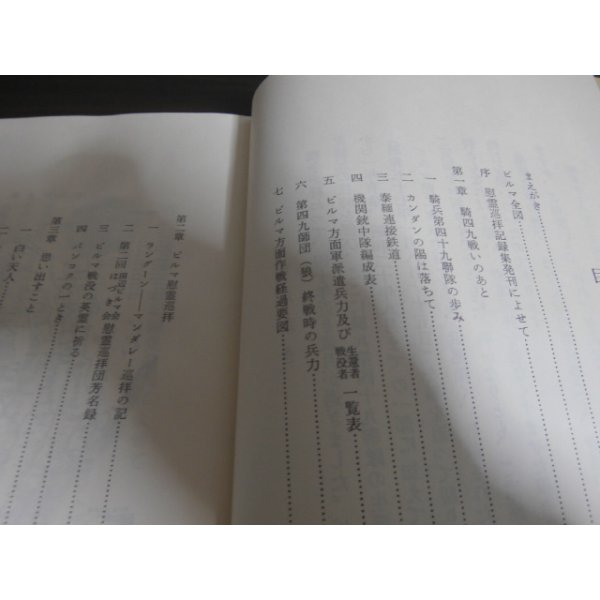 目
まえがき
ビルマ全図
序 慰霊巡拝記録集発刊によせて
第一章 騎四九戦いのあと
一 騎兵第四十九聯隊の歩み
二 カンダンの陽は落ちて
三 泰緬連接鉄道
四 機関銃中隊編成表
五 ビルマ方面軍派遣兵力及び 生還者 戦没者 一覧表
六 第四九師団（狼）終戦時の兵力
七 ビルマ方面作戦経過要図
第二章 ビルマ慰霊巡拝
一 ラングーン――マンダレー巡拝の記
二 第二回 はつぎ会 慰霊巡拝団芳名録
三 ビルマ戦没の英霊に祈る
四 バンコクの一とき
第三章 思い出すこと
一 白い天人